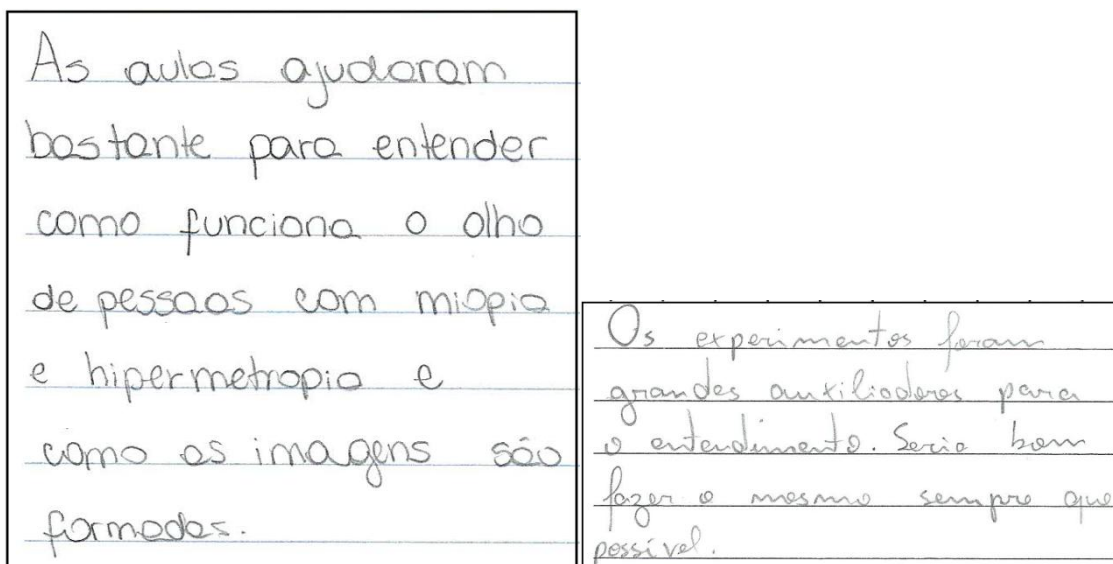 As aulas ajudaram
bastante para entender
como funciona o olho
de pessoas com miopia
e hipermetropia e
como as imagens são
formadas.
Os experimentos foram
grandes auxiliadores para
o entendimento. Seria bom
fazer o mesmo sempre que
possível.